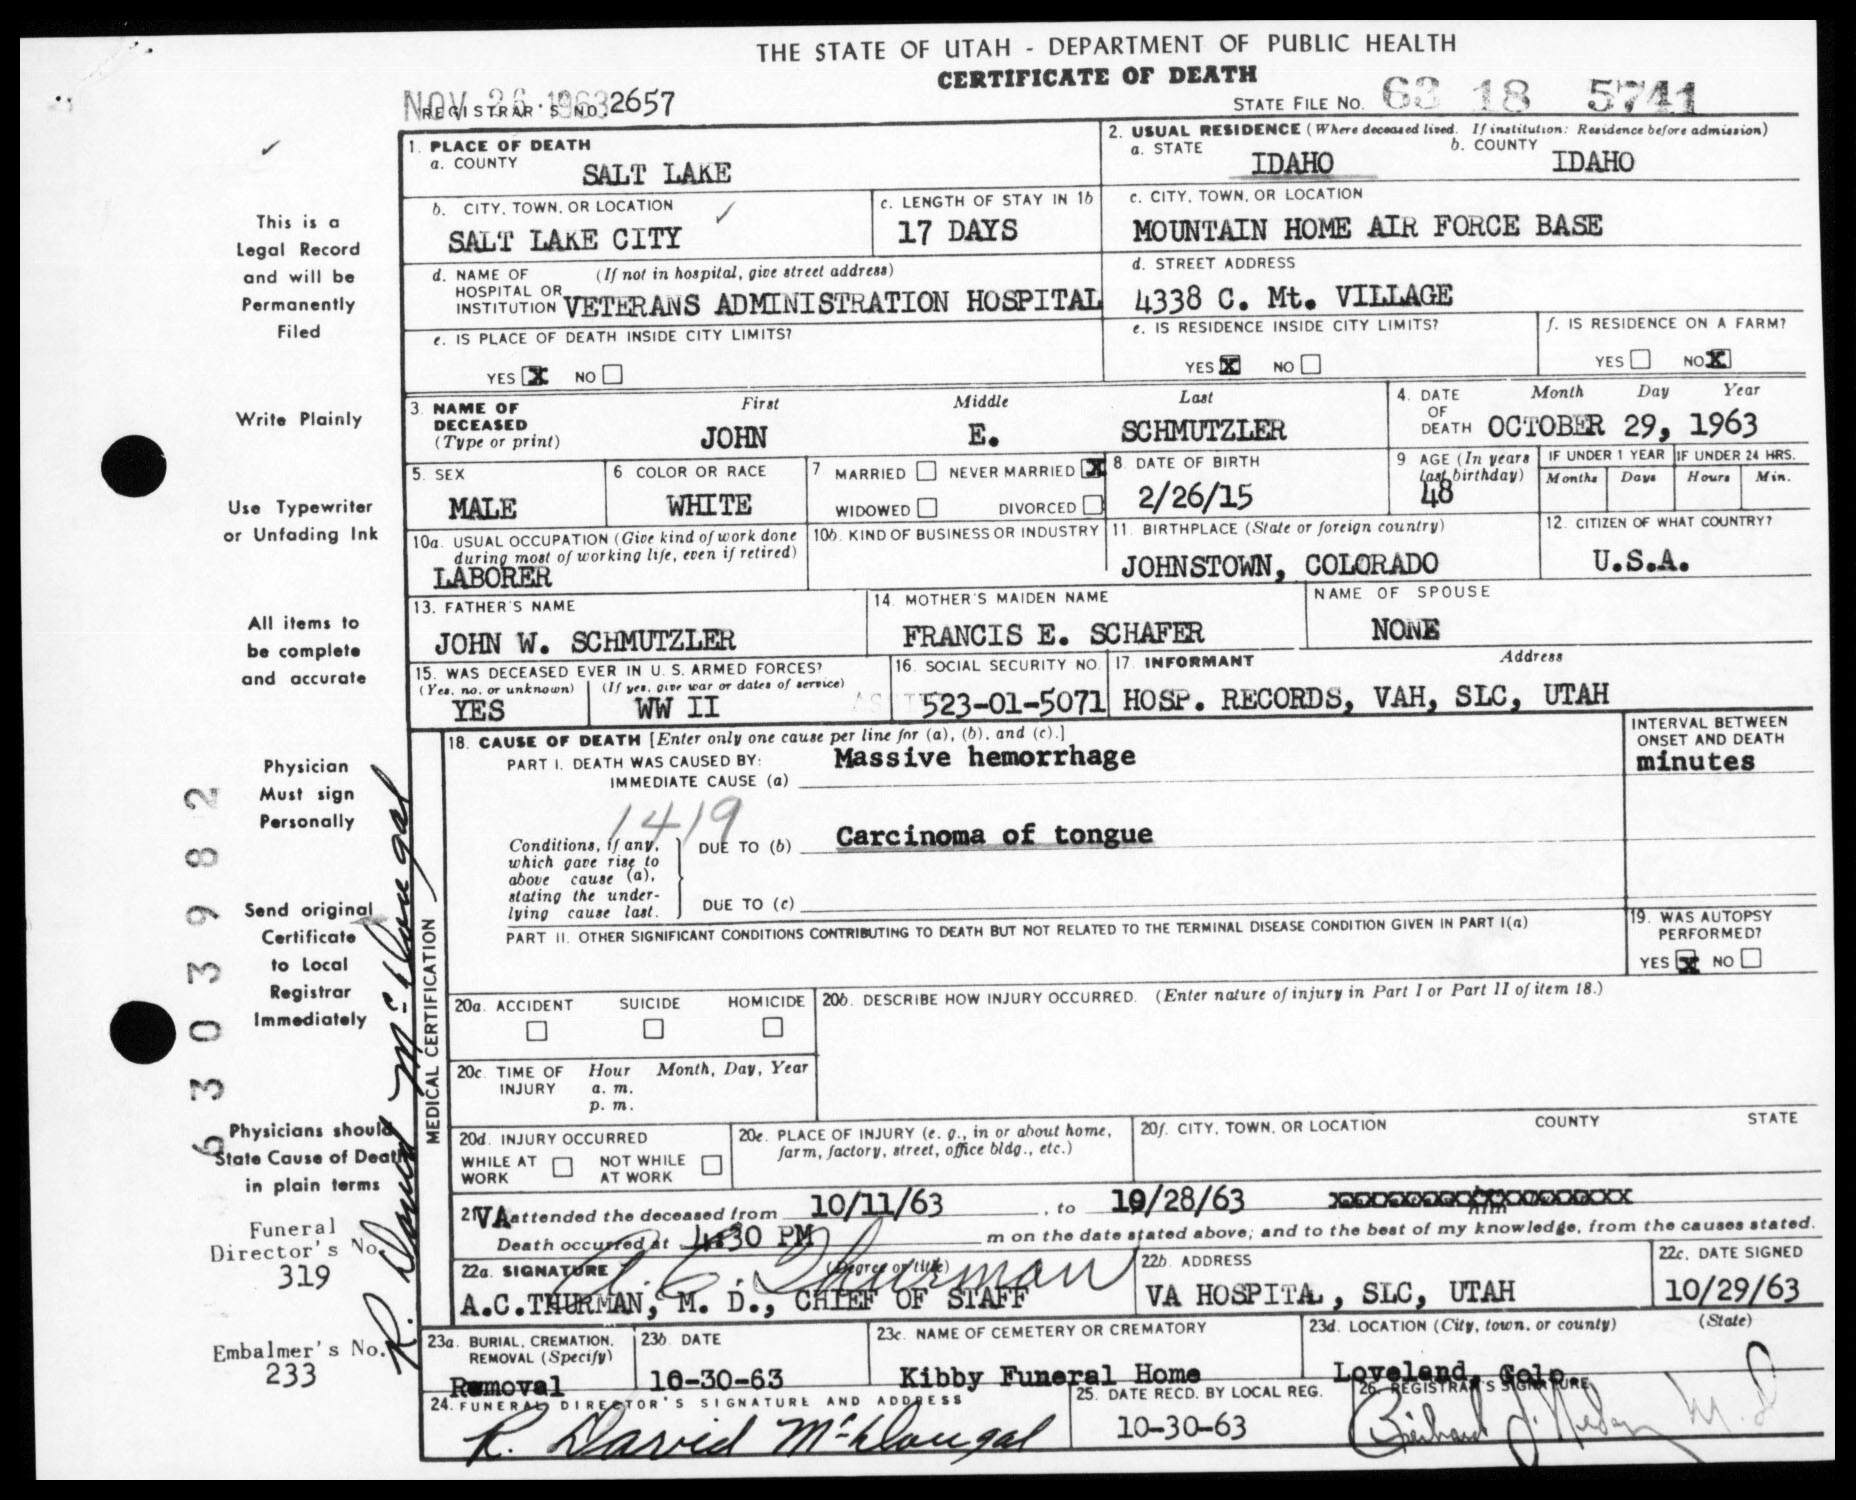 THE STATE OF UTAH - DEPARTMENT OF PUBLIC HEALTH
CERTIFICATE OF DEATH
NOV 26 1963
REGISTRAR'S NO. 2657
STATE FILE NO. 63 18 5741
1. PLACE OF DEATH
a. COUNTY
SALT LAKE
2. USUAL RESIDENCE (Where deceased lived. If institution: Residence before admission)
a. STATE
IDAHO
b. COUNTY
IDAHO
b. CITY, TOWN, OR LOCATION
SALT LAKE CITY
c. LENGTH OF STAY IN 1b
17 DAYS
c. CITY, TOWN, OR LOCATION
MOUNTAIN HOME AIR FORCE BASE
d. NAME OF HOSPITAL OR INSTITUTION
(If not in hospital, give street address)
VETERANS ADMINISTRATION HOSPITAL
d. STREET ADDRESS
4338 C. Mt. VILLAGE
e. IS PLACE OF DEATH INSIDE CITY LIMITS?
YES X NO
e. IS RESIDENCE INSIDE CITY LIMITS?
YES X NO
f. IS RESIDENCE ON A FARM?
YES NO X
3. NAME OF DECEASED
(Type or print)
First Middle Last
JOHN E. SCHMUTZLER
4. DATE OF DEATH
Month Day Year
OCTOBER 29, 1963
5. SEX
MALE
6 COLOR OR RACE
WHITE
7 MARRIED NEVER MARRIED X
WIDOWED DIVORCED
8. DATE OF BIRTH
2/26/15
9 AGE (In years last birthday)
48
IF UNDER 1 YEAR
Months Days
IF UNDER 24 HRS.
Hours Min.
10a. USUAL OCCUPATION (Give kind of work done
during most of working life, even if retired)
LABORER
10b. KIND OF BUSINESS OR INDUSTRY
11. BIRTHPLACE (State or foreign country)
JOHNSTOWN, COLORADO
12. CITIZEN OF WHAT COUNTRY?
U.S.A.
13. FATHER'S NAME
JOHN W. SCHMUTZLER
14. MOTHER'S MAIDEN NAME
FRANCIS E. SCHAFER
NAME OF SPOUSE
NONE
15. WAS DECEASED EVER IN U. S. ARMED FORCES?
(Yes, no, or unknown)
YES
(If yes, give war or dates of service)
WW II
16. SOCIAL SECURITY NO.
523-01-5071
17. INFORMANT Address
HOSP. RECORDS, VAH, SLC, UTAH
MEDICAL CERTIFICATION
18. CAUSE OF DEATH [Enter only one cause per line for (a), (b), and (c).]
PART I. DEATH WAS CAUSED BY:
IMMEDIATE CAUSE (a)
Massive hemorrhage
INTERVAL BETWEEN ONSET AND DEATH
minutes
1419
Conditions, if any,
which gave rise to
above cause (a),
stating the under-
lying cause last.
DUE TO (b)
Carcinoma of tongue
DUE TO (c)
PART II. OTHER SIGNIFICANT CONDITIONS CONTRIBUTING TO DEATH BUT NOT RELATED TO THE TERMINAL DISEASE CONDITION GIVEN IN PART I(a)
19. WAS AUTOPSY PERFORMED?
YES X NO
20a. ACCIDENT SUICIDE HOMICIDE
20b. DESCRIBE HOW INJURY OCCURRED. (Enter nature of injury in Part I or Part II of item 18.)
20c. TIME OF INJURY
Hour Month, Day, Year
a. m.
p. m.
20d. INJURY OCCURRED
WHILE AT WORK NOT WHILE AT WORK
20e. PLACE OF INJURY (e. g., in or about home,
farm, factory, street, office bldg., etc.)
20f. CITY, TOWN, OR LOCATION COUNTY STATE
21 VA attended the deceased from 10/11/63, to 10/28/63
Death occurred at 4:30 PM m on the date stated above; and to the best of my knowledge, from the causes stated.
22a. SIGNATURE (Degree or title)
A. C. Thurman
A.C.THURMAN, M. D., CHIEF OF STAFF
22b. ADDRESS
VA HOSPITAL, SLC, UTAH
22c. DATE SIGNED
10/29/63
23a. BURIAL, CREMATION, REMOVAL (Specify)
Removal
23b. DATE
10-30-63
23c. NAME OF CEMETERY OR CREMATORY
Kibby Funeral Home
23d. LOCATION (City, town, or county) (State)
Loveland, Colo.
24. FUNERAL DIRECTOR'S SIGNATURE AND ADDRESS
R. David McDougal
25. DATE RECD. BY LOCAL REG.
10-30-63
26. REGISTRAR'S SIGNATURE
This is a
Legal Record
and will be
Permanently
Filed
Write Plainly
Use Typewriter
or Unfading Ink
All items to
be complete
and accurate
Physician
Must sign
Personally
Send original
Certificate
to Local
Registrar
Immediately
Physicians should
State Cause of Death
in plain terms
Funeral
Director's No.
319
Embalmer's No.
233
6303982
R. David McDougal